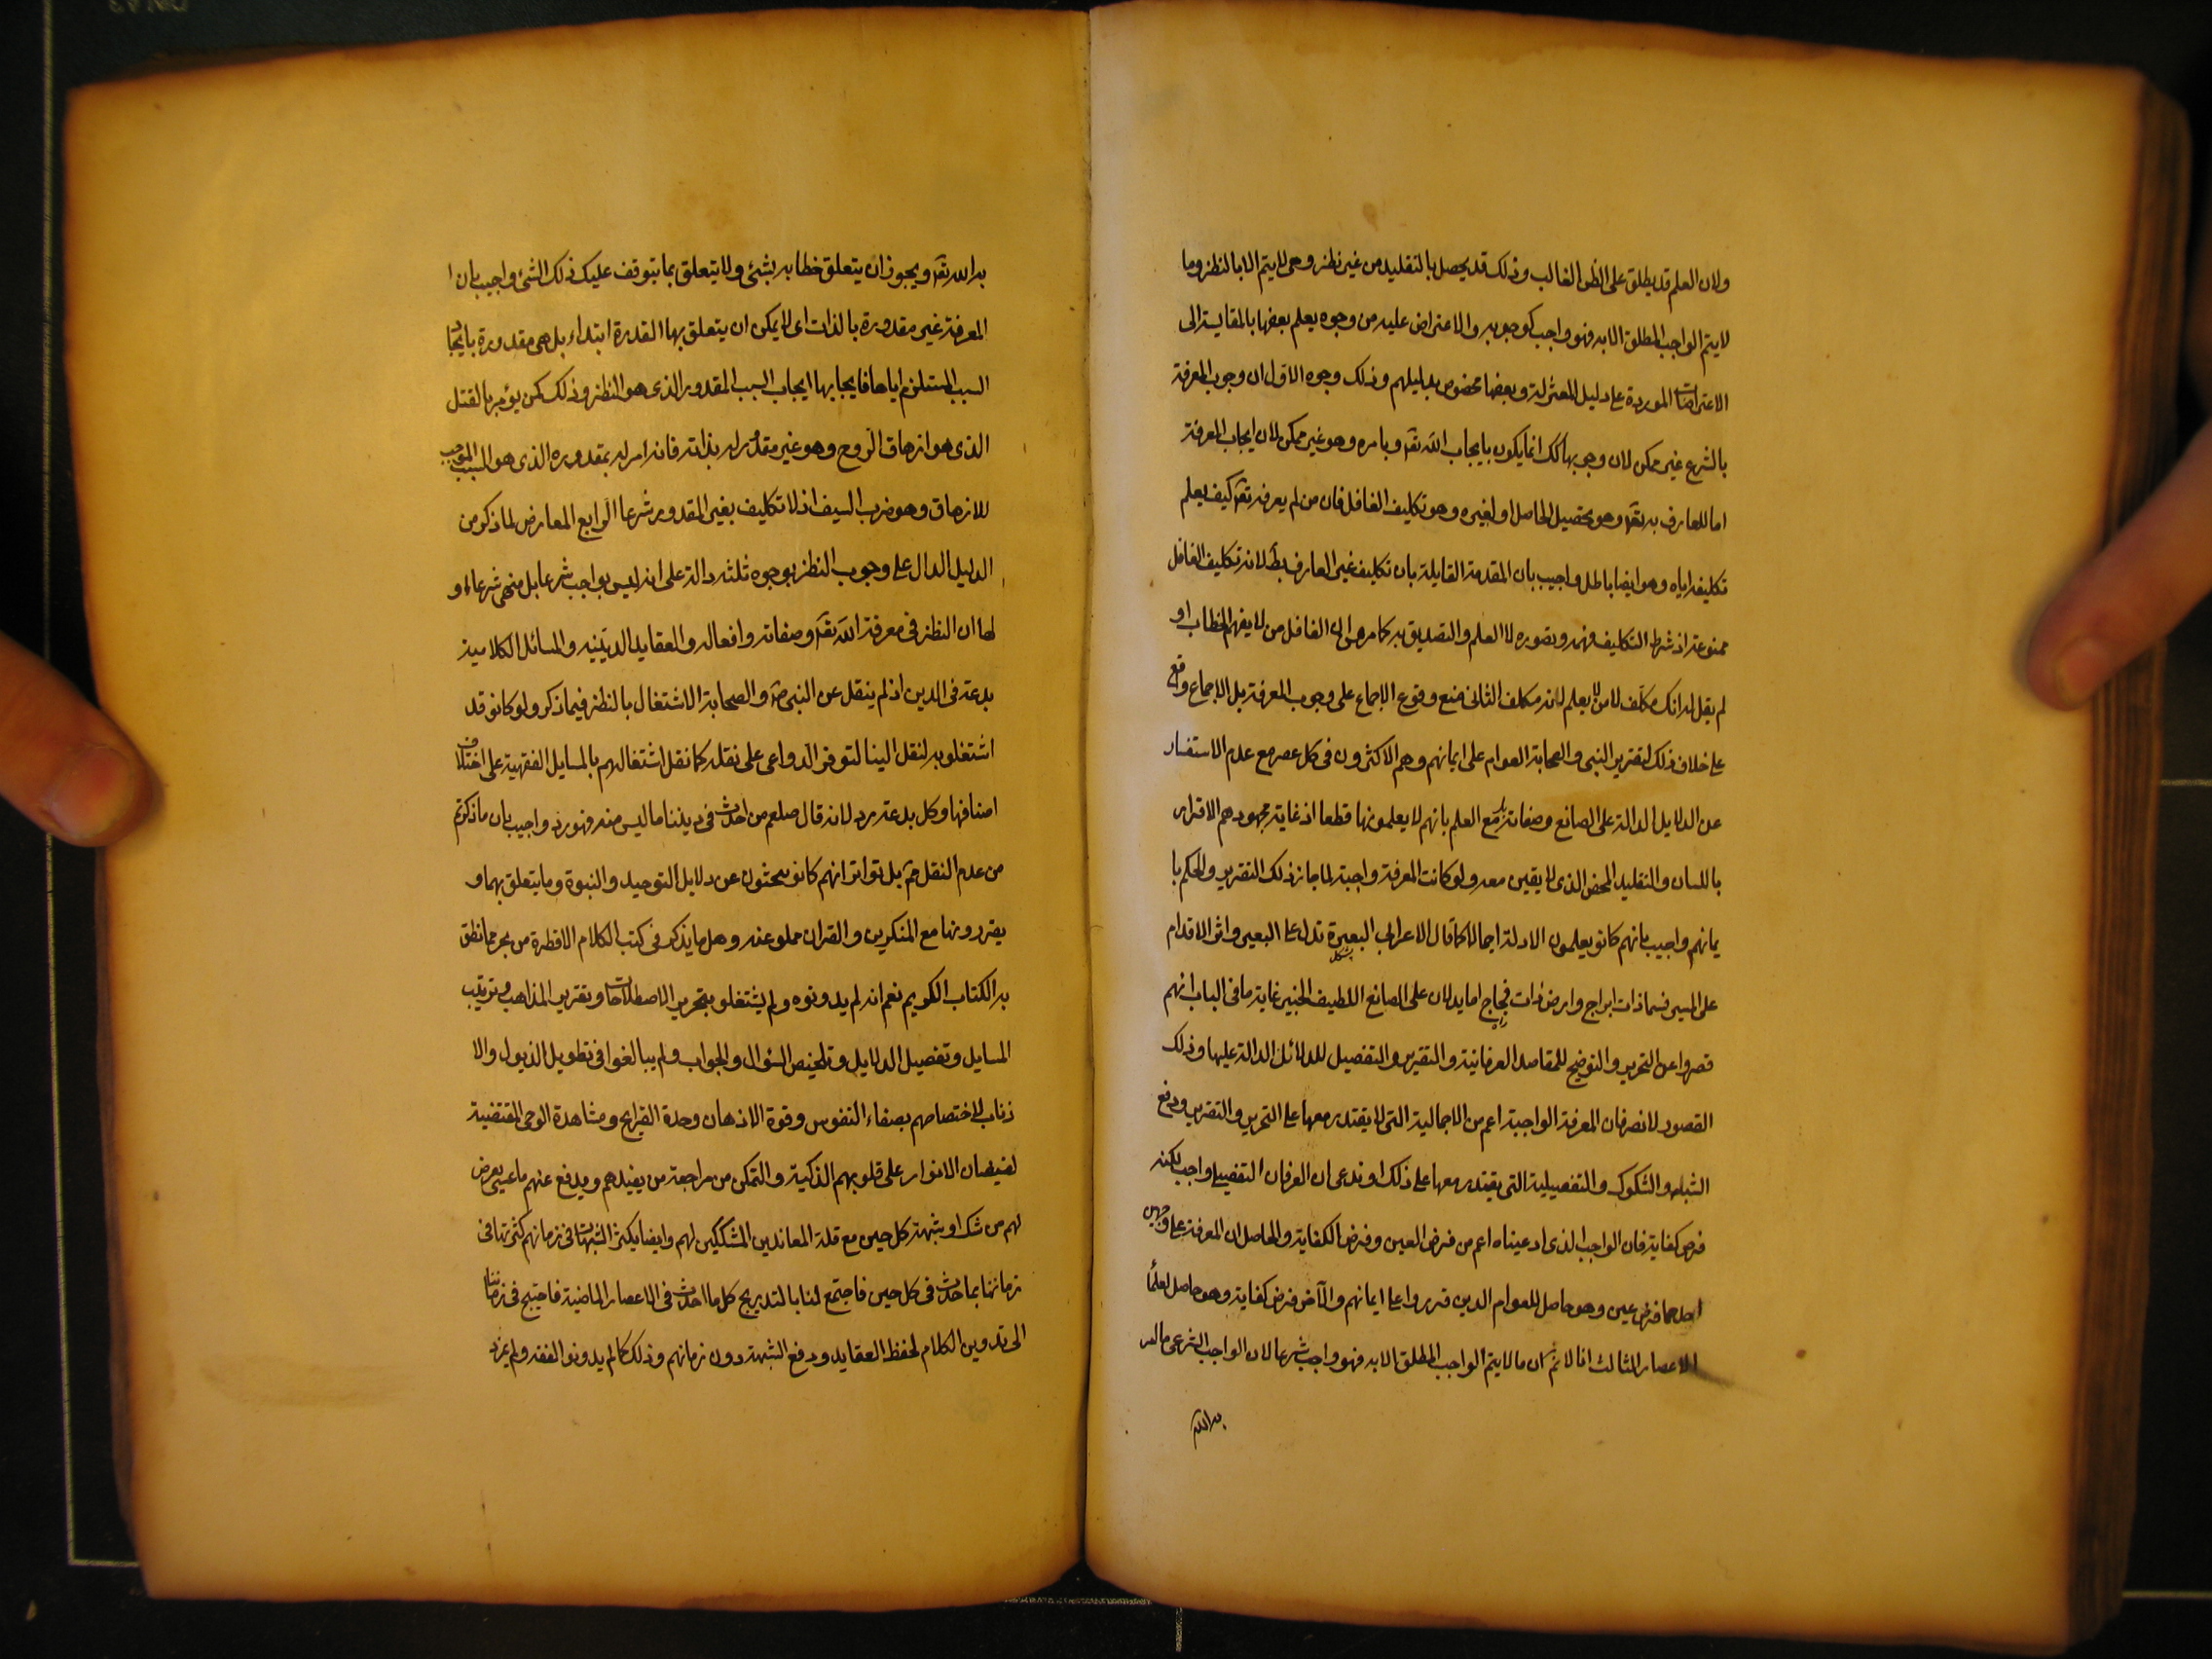 ولان العلم قد يطلق على الظن الغالب وذلك قد يحصل بالتقليد من غير نظر وهى لا يتم الا بالنظر وما
لا يتم الواجب المطلق الا به فهو واجب كوجوبه والاعتراض عليه من وجوه يعلم بعضها بالمقايسة الى
الاعتراضات الموردة على دليل المعتزلة وبعضها مخصوص بدليلهم وذلك وجوه الاول ان وجوب المعرفة
بالشرع غير ممكن لان وجوبها كك انما يكون بايجاب الله تعه وبامره وهو غير ممكن لان ايجاب المعرفة
اما للعارف به تعه وهو تحصيل الحاصل او لغيره وهو تكليف الغافل فان من لم يعرفه تعه كيف يعلم
تكليفه اياه وهو ايضا باطل واجيب بان المقدمة القايلة بان تكليف غير العارف بط لانه تكليف الغافل
ممنوعة اذ شرط التكليف فهمه وتصوره لا العلم والتصديق به كما مر من ان الغافل من لا يفهم الخطاب او
لم يقل له انك مكلف لا من لا يعلم انه مكلف الثانى منع وقوع الاجماع على وجوب المعرفة بل الاجماع واقع
على خلاف ذلك لتقرير النبى والصحابة العوام على ايمانهم وهم الاكثرون فى كل عصر مع عدم الاستفسار
عن الدلايل الدالة على الصانع وصفاته بل مع العلم بانهم لا يعلمونها قطعا اذ غاية مجهودهم الاقرار
باللسان والتقليد المحض الذى لا يقين معه ولو كانت المعرفة واجبة لما جاز ذلك التقرير والحكم با
يمانهم واجيب بانهم كانو يعلمون الادلة اجمالا كما قال الاعرابى البعرة تدل على البعير واثر الاقدام
على المسير فسماء ذات ابراج وارض ذات فجاج اما يدلان على الصانع اللطيف الخبير غاية ما فى الباب انهم
قصروا عن التحرير والتوضيح للمقاصد العرفانية والتقرير والتفصيل للدلائل الدالة عليها وذلك
القصور لا يضر فان المعرفة الواجبة اعم من الاجمالية التى لا يقتدر معها على التحرير والتقرير ودفع
الشبه والشكوك والتفصيلية التى يقتدر معها على ذلك او ندعى ان العرفان التفصيلى واجب لكنه
فرض كفاية فان الواجب الذى ادعيناه اعم من فرض العين وفرض الكفاية والحاصل ان المعرفة على وجهين
احدهما فرض عين وهو حاصل للعوام الذين قرروا على ايمانهم والآخر فرض كفاية وهو حاصل لعلماء
الاعصار الثالث انا لا نم ان ما لا يتم الواجب المطلق الا به فهو واجب شرعا لان الواجب الشرعى ما
به الله
به الله تعه ويجوز ان يتعلق خطابه بشئ ولا يتعلق بما يتوقف عليك ذلك الشئ واجيب بان ا
المعرفة غير مقدورة بالذات اى لا يمكن ان يتعلق بها القدرة ابتداء بل هى مقدورة بايجاد
السبب المستلزم اياها فايجابها ايجاب السبب المقدور الذى هو النظر وذلك كمن يؤمر بالقتل
الذى هو ازهاق الروح وهو غير مقدور له بذاته فانه امر له بمقدوره الذى هو السبب الموجب
للازهاق وهو ضرب السيف اذ لا تكليف بغير المقدور شرعا الرابع المعارض لما ذكر من
الدليل الدال على وجوب النظر بوجوه ثلثة دالة على انه ليس بواجب شرعا بل منهى شرعا و
لها ان النظر فى معرفة الله تعه وصفاته وافعاله والعقايد الدينيه والمسائل الكلامية
بدعة فى الدين اذ لم ينقل عن النبى صه والصحابة الاشتغال بالنظر فيما ذكر ولو كانو قد
اشتغلو به لنقل الينا لتوفر الدواعى على نقله كما نقل اشتغالهم بالمسايل الفقهية على اختلاف
اصنافها وكل بدعة رد لانه قال صلعم من احدث فى ديننا ما ليس منه فهو رد واجيب بان ما ذكرتم
من عدم النقل مم بل تواتر انهم كانو يبحثون عن دلايل التوحيد والنبوة وما يتعلق بهما و
يقررونها مع المنكرين والقران مملو عنه وهل ما يذكر فى كتب الكلام الا قطرة من بحر مما نطق
به الكتاب الكريم نعم انه لم يدونوه ولم يشتغلو بتحرير الاصطلاحات وتقرير المذاهب وترتيب
المسايل وتفصيل الدلايل وتلخيص السؤال والجواب ولم يبالغوا فى تطويل الذيول والا
ذناب لاختصاصهم بصفاء النفوس وقوة الاذهان وحدة القرايح ومشاهدة الوحى المقتضية
لفيضان الانوار على قلوبهم الذكية والتمكن من مراجعة من يفيدهم ويدفع عنهم ما عسى يعرض
لهم من شك او شبهة كل حين مع قلة المعاندين المشككين لهم وايضا يكثر الشبهات فى زمانهم كثرتها فى
زماننا بما حدث فى كل حين فاجتمع لنا بالتدريج كل ما احدث فى الاعصار الماضية فاحتيج فى زماننا
الى تدوين الكلام لحفظ العقايد ودفع الشبهة دون زمانهم وذلك كما لم يدونو الفقه ولم